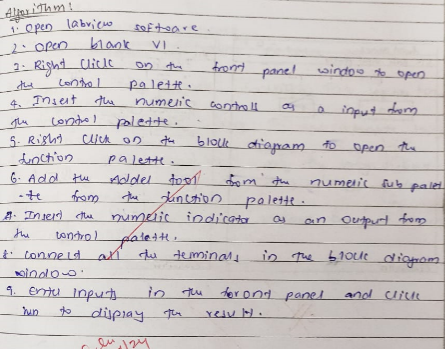 Algorithm:
1. Open labview software.
2. Open blank VI
3. Right Click on the front panel window to open
the control palette.
4. Insert the numeric controls as a input from
the control palette.
5. Right Click on the block diagram to open the
function palette.
6. Add the Adder tool from the numeric sub palet
-te from the function palette.
7. Insert the numeric indicator as an output from
the control palette.
8. connect all the teminals in the block diagram
window.
9. Enter Inputs in the foront panel and click
run to display the result.